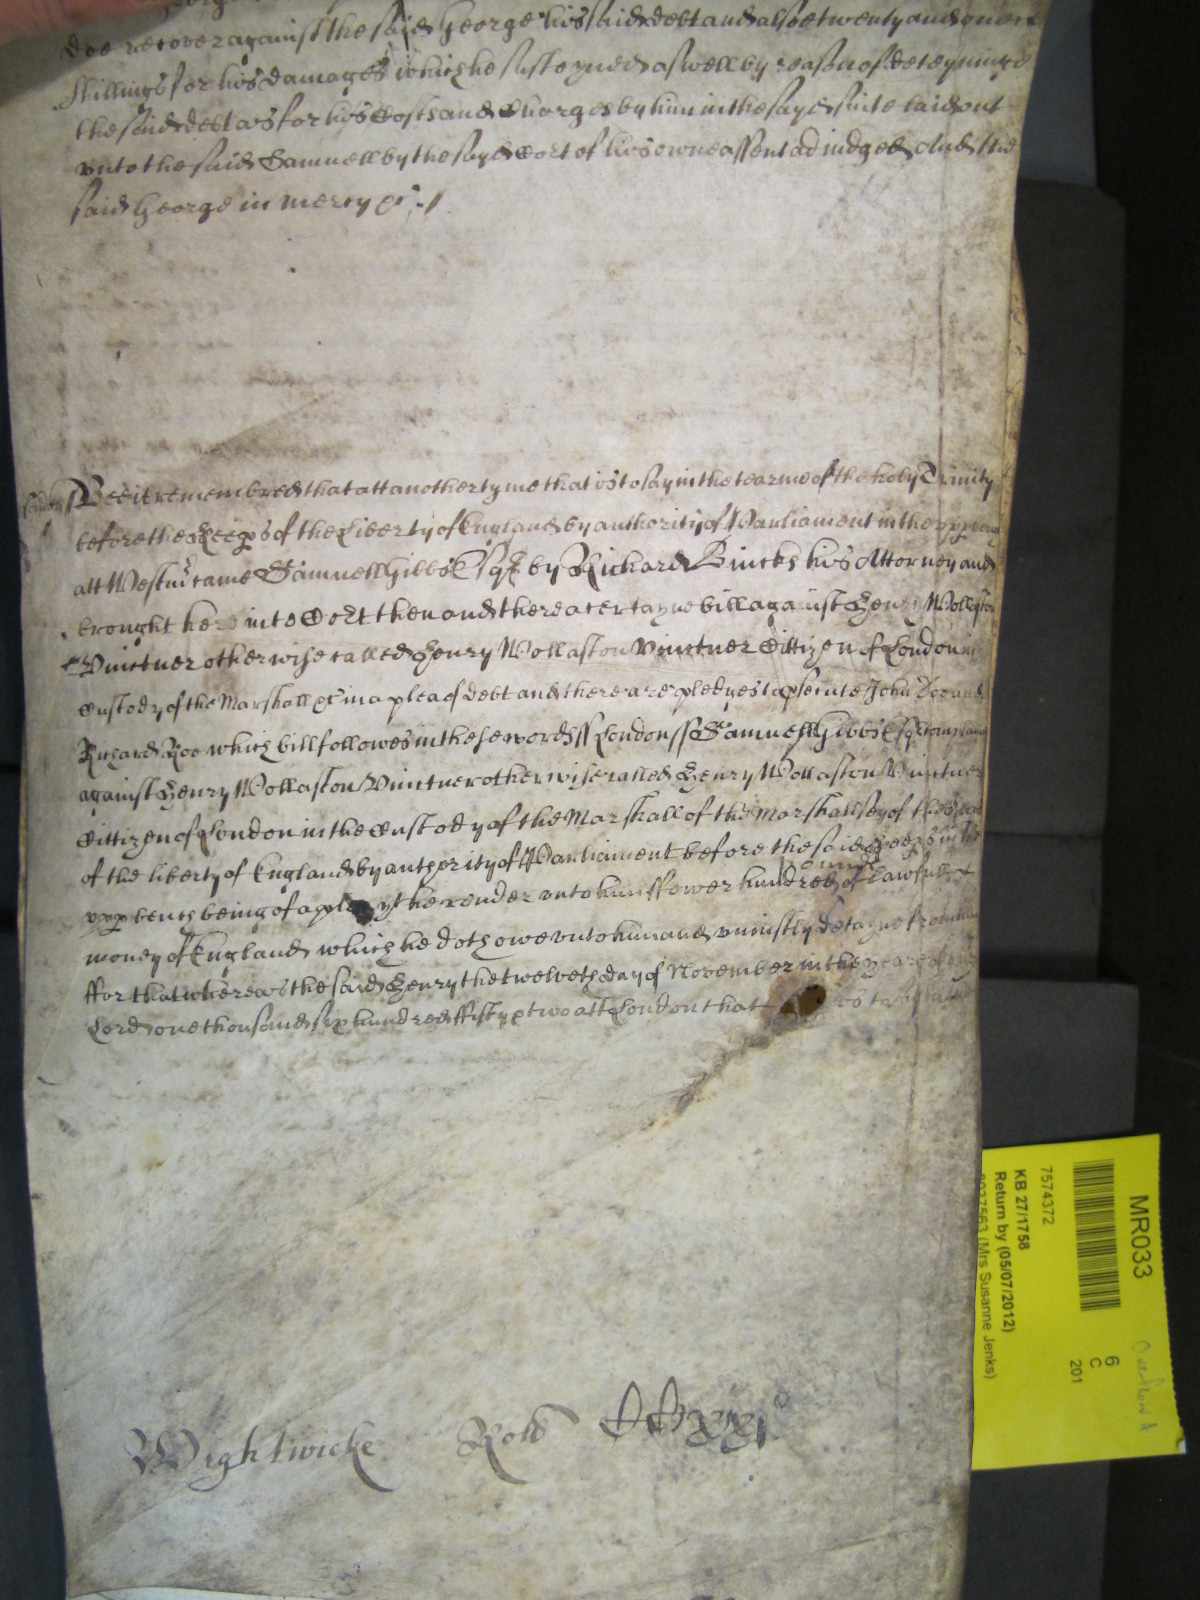 doe recover against the said George his said debt and alsoe twenty and one
shillings for his damages which he susteyned aswell by reason of deteyninge
the said debt as for his Costs and Charges by him in the sayd suite laid out
unto the said Samuell by the sayd Cort of his owne assent adiudged And the
said George in mercy &c
London ss Bee it remembred that att another tyme that is to say in the tearme of the holy Trinity
before the Keeps of the Liberty of England by authority of Parliament in the upp bench
att Westmr came Samuell Gibbs Esqr by Richard Bincks his Attorney and
brought here into Cort then and there a certayne bill against Henry Wollaston
Vinctner otherwise called Henry Wollaston Vinctner Cittizen of London in
custody of the Marshall &c in a plea of debt and there are pledges to psecute John Doe and
Richard Roe which bill followes in these words ss London ss Samuell Gibbs Esqr complaines
against Henry Wollaston Vinctner otherwise called Henry Wollaston Vinctner
Cittizen of London in the Custody of the Marshall of the Marshallsey of the Keeps
of the liberty of England by authority of Parliament before the said Keeps in the
upp bench being of a plea that he render unto him ffower hundred pounds of lawfull
money of England which he doth owe unto him and uniustly detayne from him
ffor that whereas the said Henry the twelveth day of November in the yeare of our
Lord one thousand six hundred ffifty & two att London that is to say
Wightwicke Roll
MR033
7574372
KB 27/1758
Return by (05/07/2012)
(Mrs Susanne Jenks)
6
C
201